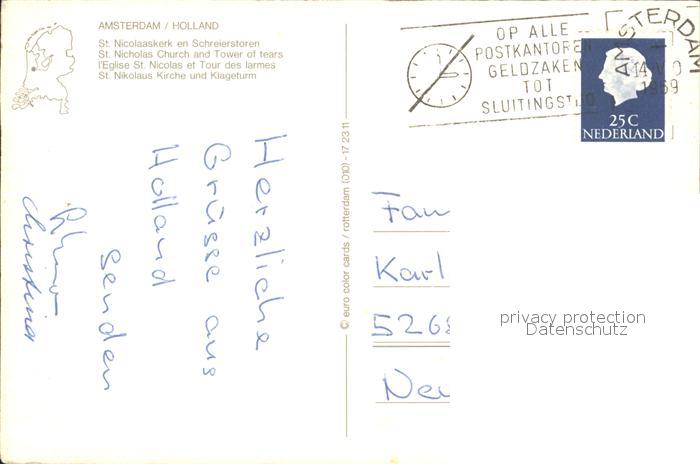 AMSTERDAM / HOLLAND
St. Nicolaaskerk en Schreierstoren
St. Nicholas Church and Tower of tears
l'Eglise St. Nicolas et Tour des larmes
St. Nikolaus Kirche und Klageturm
Herzliche
Grüsse aus
Holland
senden
Christina
© euro color cards / rotterdam (010) - 17 23 11
OP ALLE
POSTKANTOREN
GELDZAKEN
TOT
SLUITINGSTIJD
AMSTERDAM
1969
25 C
NEDERLAND
Fam
Karl
5268
Neu
privacy protection
Datenschutz